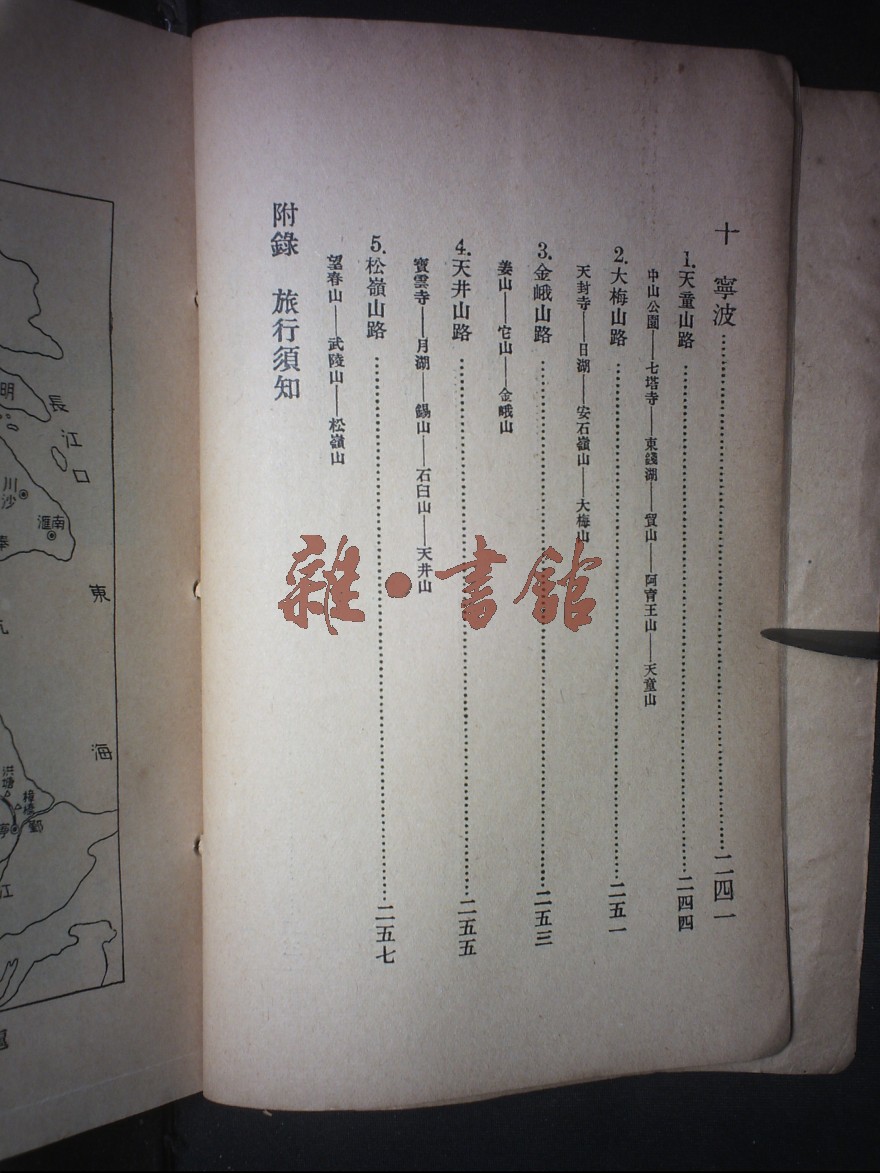 十 寧波……二四一
1.天童山路……二四四
中山公園——七塔寺——東錢湖——貿山——阿育王山——天童山
2.大梅山路……二五一
天封寺——日湖——安石嶺山——大梅山
3.金峨山路……二五三
姜山——它山——金峨山
4.天井山路……二五五
寶雲寺——月湖——錫山——石臼山——天井山
5.松嶺山路……二五七
望春山——武陵山——松嶺山
附錄 旅行須知
雜·書館
明
長江口
川沙
南匯
奉
東海
杭
洪塘
樟橋
鄞
寧
江